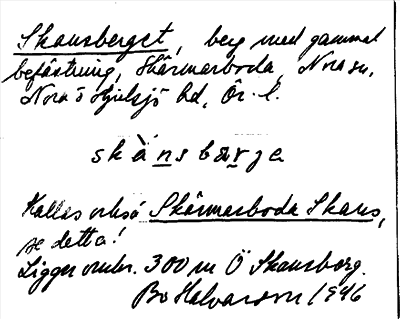 Skansberget, berg med gammal
befästning, Skärmarboda, Nora sn,
Nora o Hjulsjö hd, Ör. l.
skànsbärje
Kallas också Skärmarboda Skans,
se detta!
Ligger omkr. 300 m Ö Skansberg.
Bo Halvarson 1946